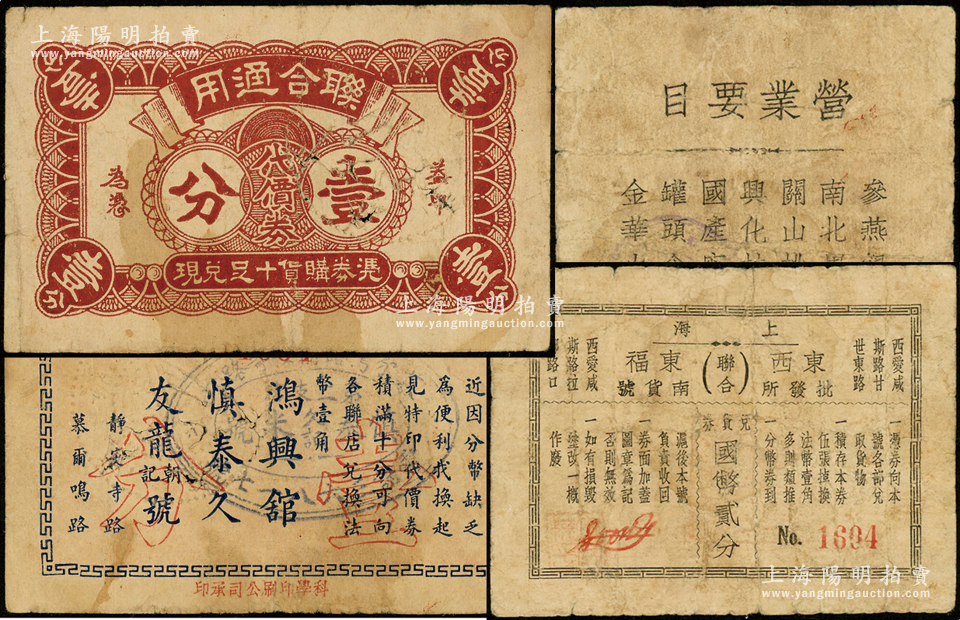 上海陽明拍賣
www.yangmingauction.com
聯合通用
壹
分
代價券
為憑
憑券購貨十足兌現
營業要目
參燕
南北
關山
興化
國產
罐頭
金華
近因分幣缺乏
為便利找換起
見特印代價券
積滿十分可向
各聯店兌換法
幣壹角
鴻興舘
慎泰久
友龍朝記號
靜安寺路
慕爾鳴路
科學印刷公司承印
上海陽明拍賣
www.yangmingauction.com
上海
東西批發所
(聯合)
東福南貨號
西愛咸
斯路甘
世東路
西愛咸
斯路拉
路口
兌貨券
國幣貳分
一憑券向本
號各部兌
取貨物
一積存本券
伍張掉換
法幣壹角
多則類推
一分幣券到
滬後本號
負責收回
一券面加蓋
圖章爲記
否則無效
一如有損毀
塗改一概
作廢
No. 1694
上海陽明拍賣
www.yangmingauction.com